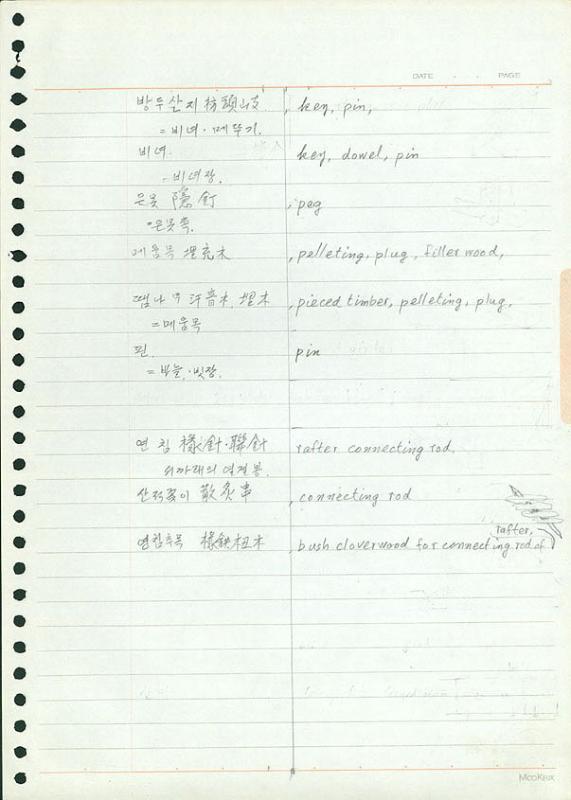 DATE . . PAGE
방두산지 枋頭山支 , key, pin,
= 비녀 · 메뚜기.
비녀. key, dowel, pin
= 비녀장.
은못 隱釘 , peg
· 은못촉.
메움목 埋充木 , pelleting, plug, filler wood,
땜나무 汗音木, 埋木 , pieced timber, pelleting, plug.
= 메움목
핀. pin
= 바늘 · 빗장.
연침 椽針 · 聯針 rafter connecting rod.
서까래의 연결봉.
산적꽂이 散炙串 , connecting rod
rafter,
연침추목 木 , bush cloverwood for connecting rod of
MOOKEUK